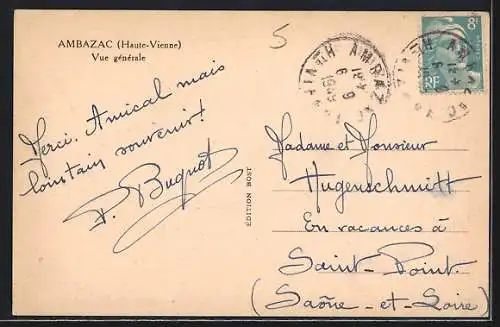 5
AMBAZAC (Haute-Vienne)
Vue générale
Merci. Amical mais
lointain souvenir!
P. Buguot
ÉDITION BOST
AMBAZAC
6 9
1949
8F
RF
Madame et Monsieur
Hugenschmitt
En vacances à
Saint-Point.
(Saône-et-Loire)